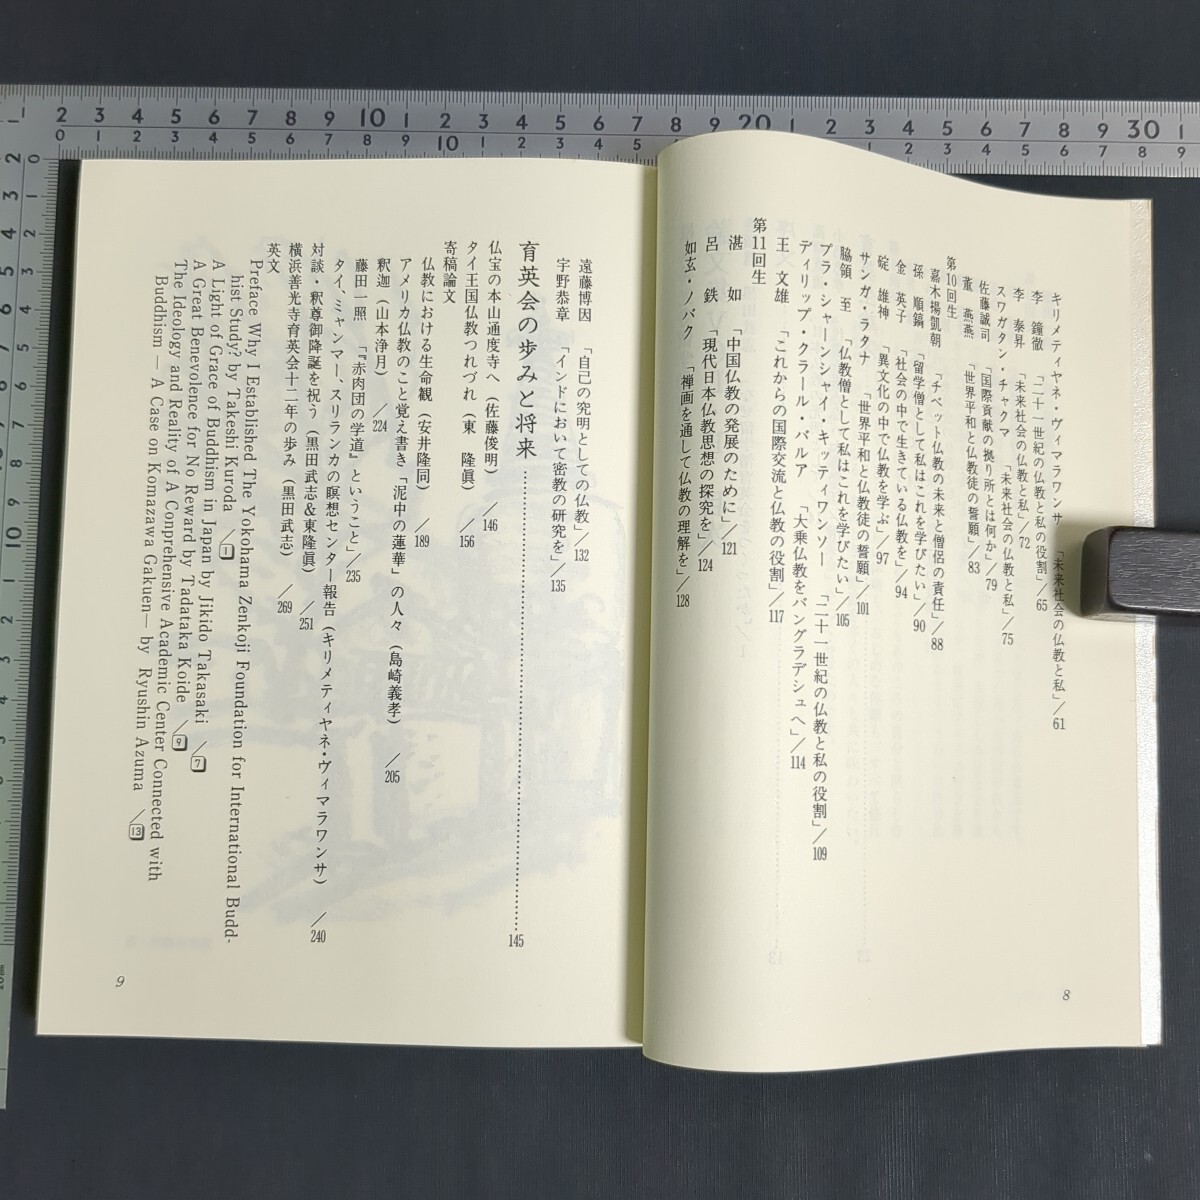 キリメティヤネ・ヴィマラワンサ 「未来社会の仏教と私」/61
李 鐘徹 「二十一世紀の仏教と私の役割」/65
李 泰昇 「未来社会の仏教と私」/72
スワガタン・チャクマ 「未来社会の仏教と私」/75
佐藤誠司 「国際貢献の拠り所とは何か」/79
董 燕燕 「世界平和と仏教徒の誓願」/83
第10回生
嘉木揚凱朝 「チベット仏教の未来と僧侶の責任」/88
孫 順鎬 「留学僧として私はこれを学びたい」/90
金 英子 「社会の中で生きている仏教を」/94
碇 雄神 「異文化の中で仏教を学ぶ」/97
サンガ・ラタナ 「世界平和と仏教徒の誓願」/101
脇領 至 「仏教僧として私はこれを学びたい」/105
プラ・シャーンシャイ・キッティワンソー 「二十一世紀の仏教と私の役割」/109
ディリップ・クラール・バルア 「大乗仏教をバングラデシュへ」/114
王 文雄 「これからの国際交流と仏教の役割」/117
第11回生
湛 如 「中国仏教の発展のために」/121
呂 鉄 「現代日本仏教思想の探究を」/124
如玄・ノバク 「禅画を通して仏教の理解を」/128
8
遠藤博因 「自己の究明としての仏教」/132
宇野恭章 「インドにおいて密教の研究を」/135
育英会の歩みと将来 145
仏宝の本山通度寺へ(佐藤俊明) /146
タイ王国仏教つれづれ(東 隆眞) /156
寄稿論文
仏教における生命観(安井隆同) /189
アメリカ仏教のこと覚え書き「泥中の蓮華」の人々(島崎義孝) /205
釈迦(山本浄月) /224
藤田一照 「『赤肉団の学道』ということ」/235
タイ、ミャンマー、スリランカの瞑想センター報告(キリメティヤネ・ヴィマラワンサ) /240
対談・釈尊御降誕を祝う(黒田武志&東隆眞) /251
横浜善光寺育英会十二年の歩み(黒田武志) /269
英文
Preface Why I Established The Yokohama Zenkoji Foundation for International Budd-
hist Study? by Takeshi Kuroda /3
A Light of Grace of Buddhism in Japan by Jikido Takasaki /7
A Great Benevolence for No Reward by Tadataka Koide /9
The Ideology and Reality of A Conprehensive Academic Center Connected with
Buddhism — A Case on Komazawa Gakuen— by Ryushin Azuma /13
9